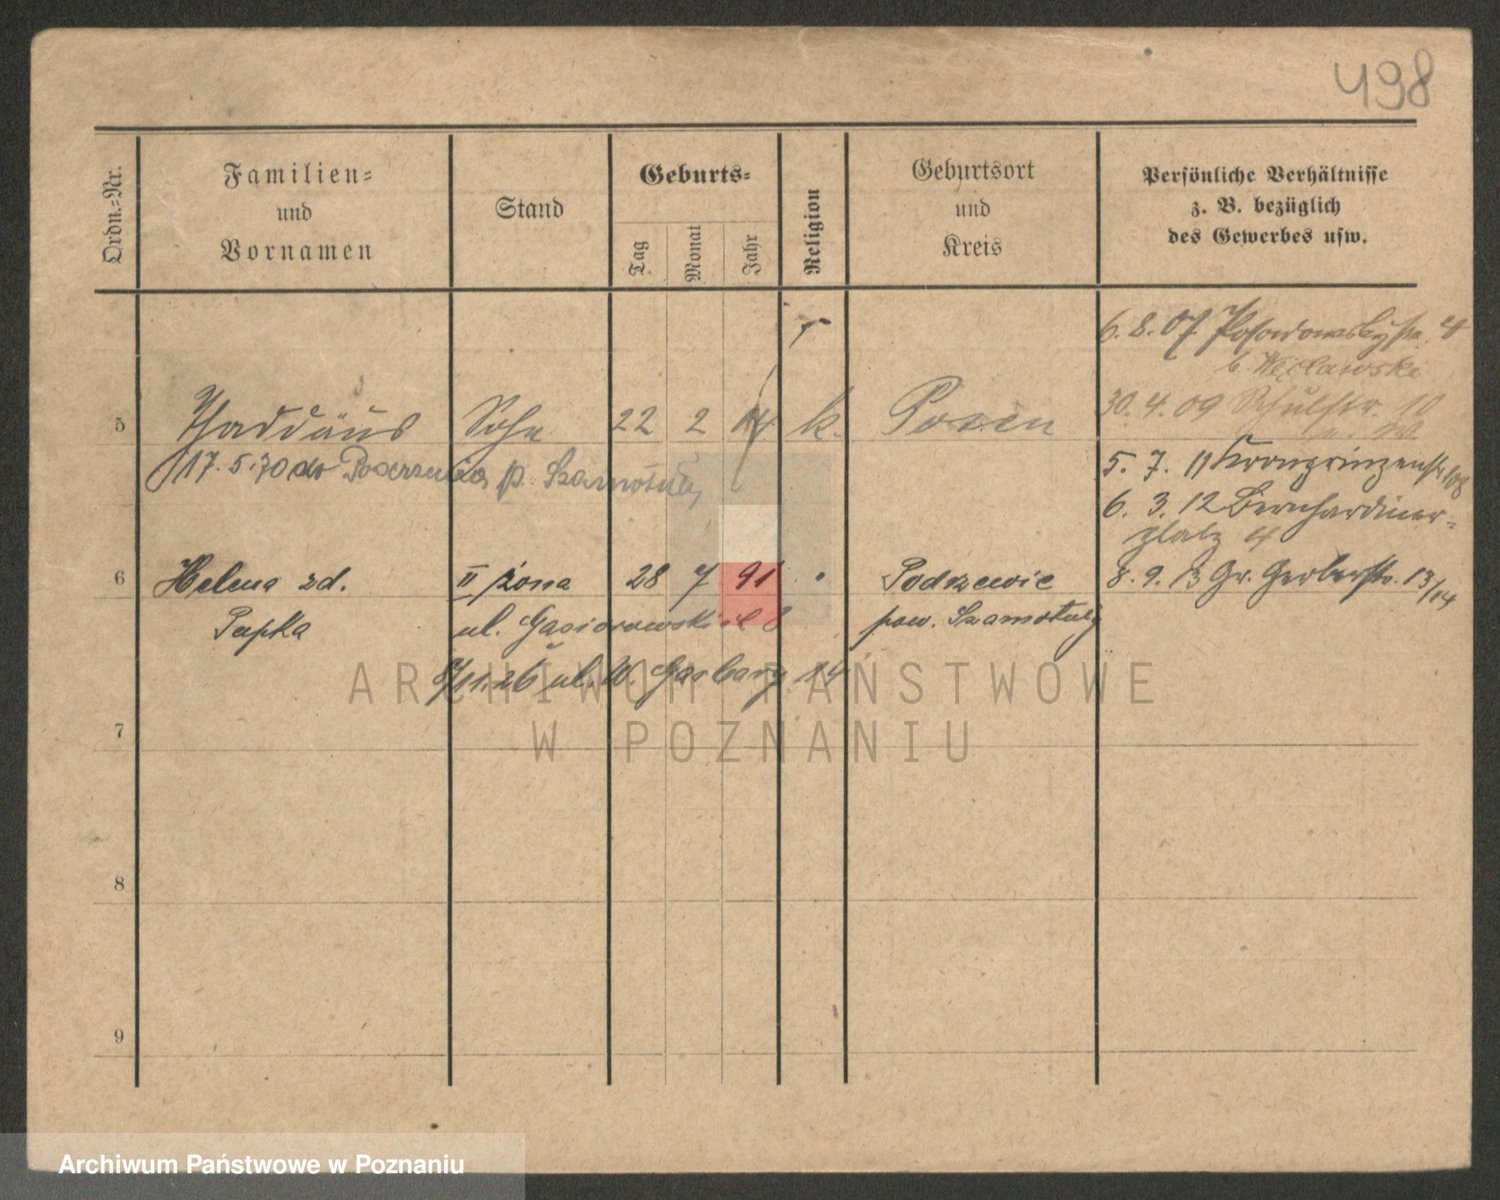 498
Ordn.=Nr.
Familien=
und
Vornamen
Stand
Geburts=
Tag
Monat
Jahr
Religion
Geburtsort
und
Kreis
Persönliche Verhältnisse
z. B. bezüglich
des Gewerbes usw.
6.8.07
30.4.09 Schulstr. 10
5 Thaddäus Sohn 22 2 k. Posen
5. 7. 11 Kronprinzenstr 108
17.5.30 do p. Szamotuły
6. 3. 12 Bernhardiner=
platz 4
6 Helena zd. II żona 28 7 91 Podrzewie
8. 9. 13 Gr. Gerberstr. 13/14
Pupka ul. Gąsiorowskich 8 pow. Szamotuły
11.26 ul. W. Garbary 14
ARCHIWUM PAŃSTWOWE
W POZNANIU
7
8
9
Archiwum Państwowe w Poznaniu